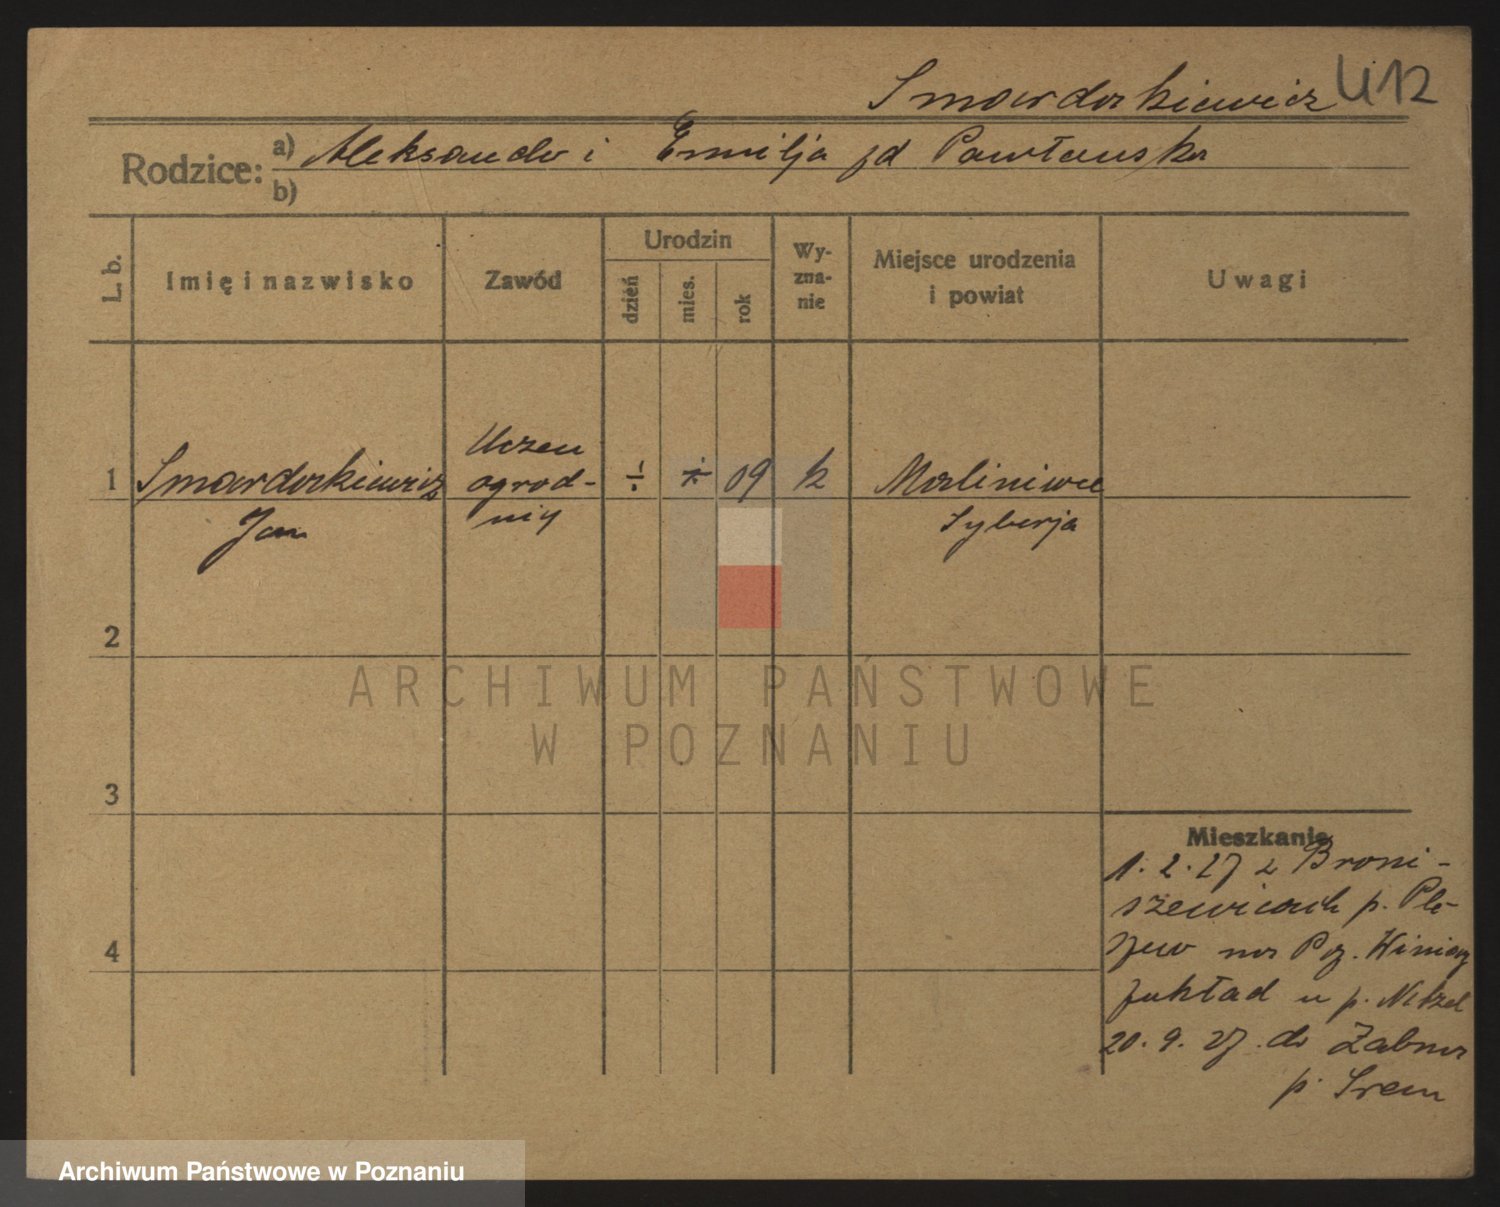 Smardzkiewicz U12
Rodzice: a) Aleksander i Emilja zd Pawłauska
b)
L. b.
Imię i nazwisko
Zawód
Urodzin
dzień
mies.
rok
Wy-
zna-
nie
Miejsce urodzenia
i powiat
Uwagi
1 Smardzkiewicz
Jan
Uczen
ogrod-
niy
÷ ÷ 09 k
Maliniwce
Syberja
2
3
4
Mieszkanie
1.2.27 z Broni-
szewicach p. Ple-
szew na Poz. Winiary
zakład u p. Netzel
20.9.27. do Żabna
p. Srem
ARCHIWUM PAŃSTWOWE
W POZNANIU
Archiwum Państwowe w Poznaniu